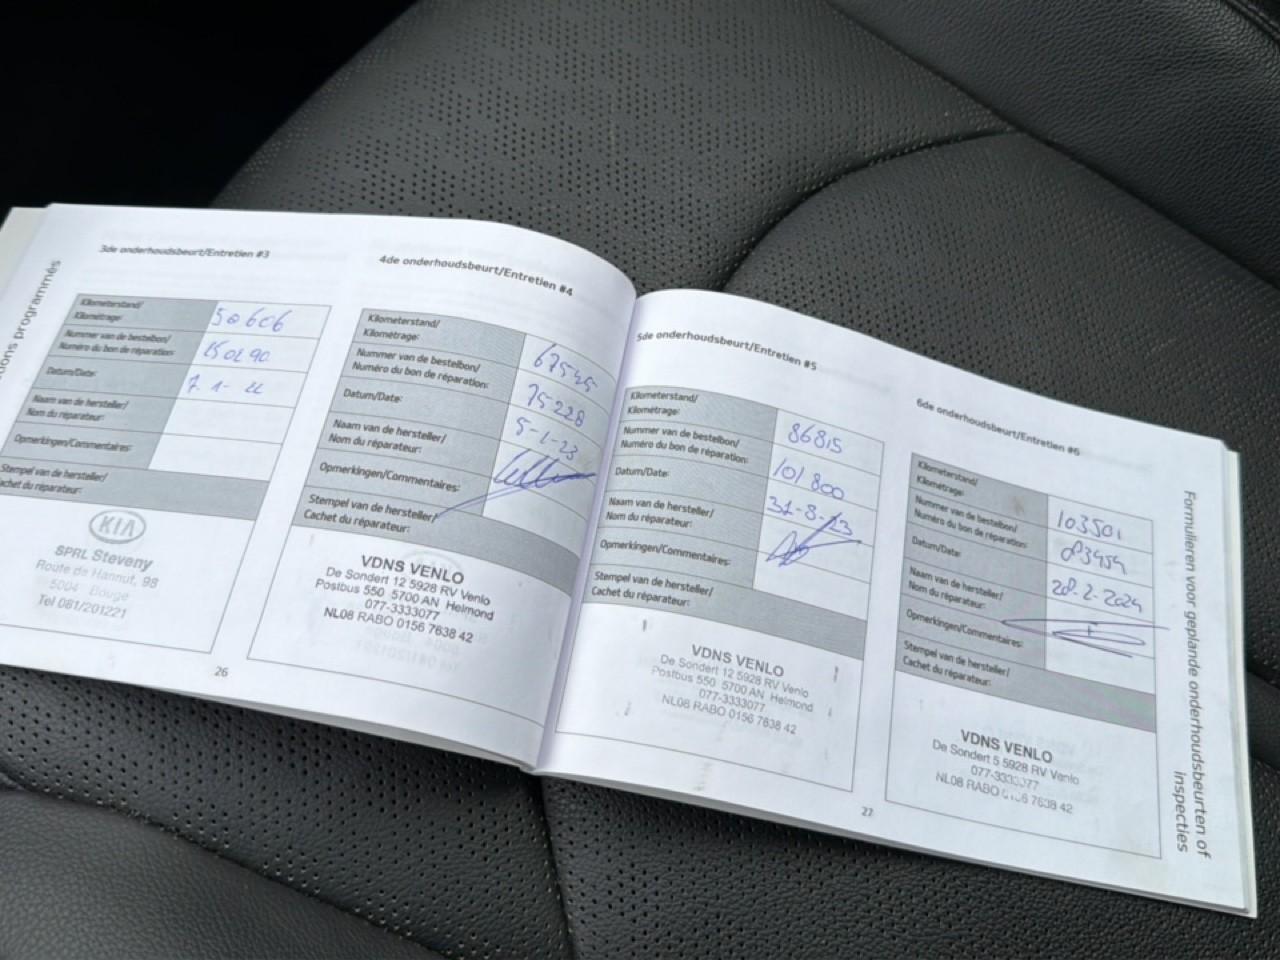 tions programmés
3de onderhoudsbeurt/Entretien #3
Kilometerstand/
Kilométrage:
50606
Nummer van de bestelbon/
Numéro du bon de réparation:
150290
Datum/Date:
7-1-22
Naam van de hersteller/
Nom du réparateur:
Opmerkingen/Commentaires:
Stempel van de hersteller/
Cachet du réparateur:
KIA
SPRL Steveny
Route de Hannut, 98
5004 Bouge
Tel 081/201221
4de onderhoudsbeurt/Entretien #4
Kilometerstand/
Kilométrage:
67545
Nummer van de bestelbon/
Numéro du bon de réparation:
75228
Datum/Date:
5-1-23
Naam van de hersteller/
Nom du réparateur:
Opmerkingen/Commentaires:
Stempel van de hersteller/
Cachet du réparateur:
VDNS VENLO
De Sondert 12 5928 RV Venlo
Postbus 550 5700 AN Helmond
077-3333077
NL08 RABO 0156 7638 42
26
5de onderhoudsbeurt/Entretien #5
Kilometerstand/
Kilométrage:
86815
Nummer van de bestelbon/
Numéro du bon de réparation:
101800
Datum/Date:
31-8-23
Naam van de hersteller/
Nom du réparateur:
Opmerkingen/Commentaires:
Stempel van de hersteller/
Cachet du réparateur:
VDNS VENLO
De Sondert 12 5928 RV Venlo
Postbus 550 5700 AN Helmond
077-3333077
NL08 RABO 0156 7638 42
27
6de onderhoudsbeurt/Entretien #6
Kilometerstand/
Kilométrage:
103501
Nummer van de bestelbon/
Numéro du bon de réparation:
83454
Datum/Date:
28-2-2024
Naam van de hersteller/
Nom du réparateur:
Opmerkingen/Commentaires:
Stempel van de hersteller/
Cachet du réparateur:
VDNS VENLO
De Sondert 5 5928 RV Venlo
077-3333077
NL08 RABO 0156 7638 42
Formulieren voor geplande onderhoudsbeurten of
inspecties